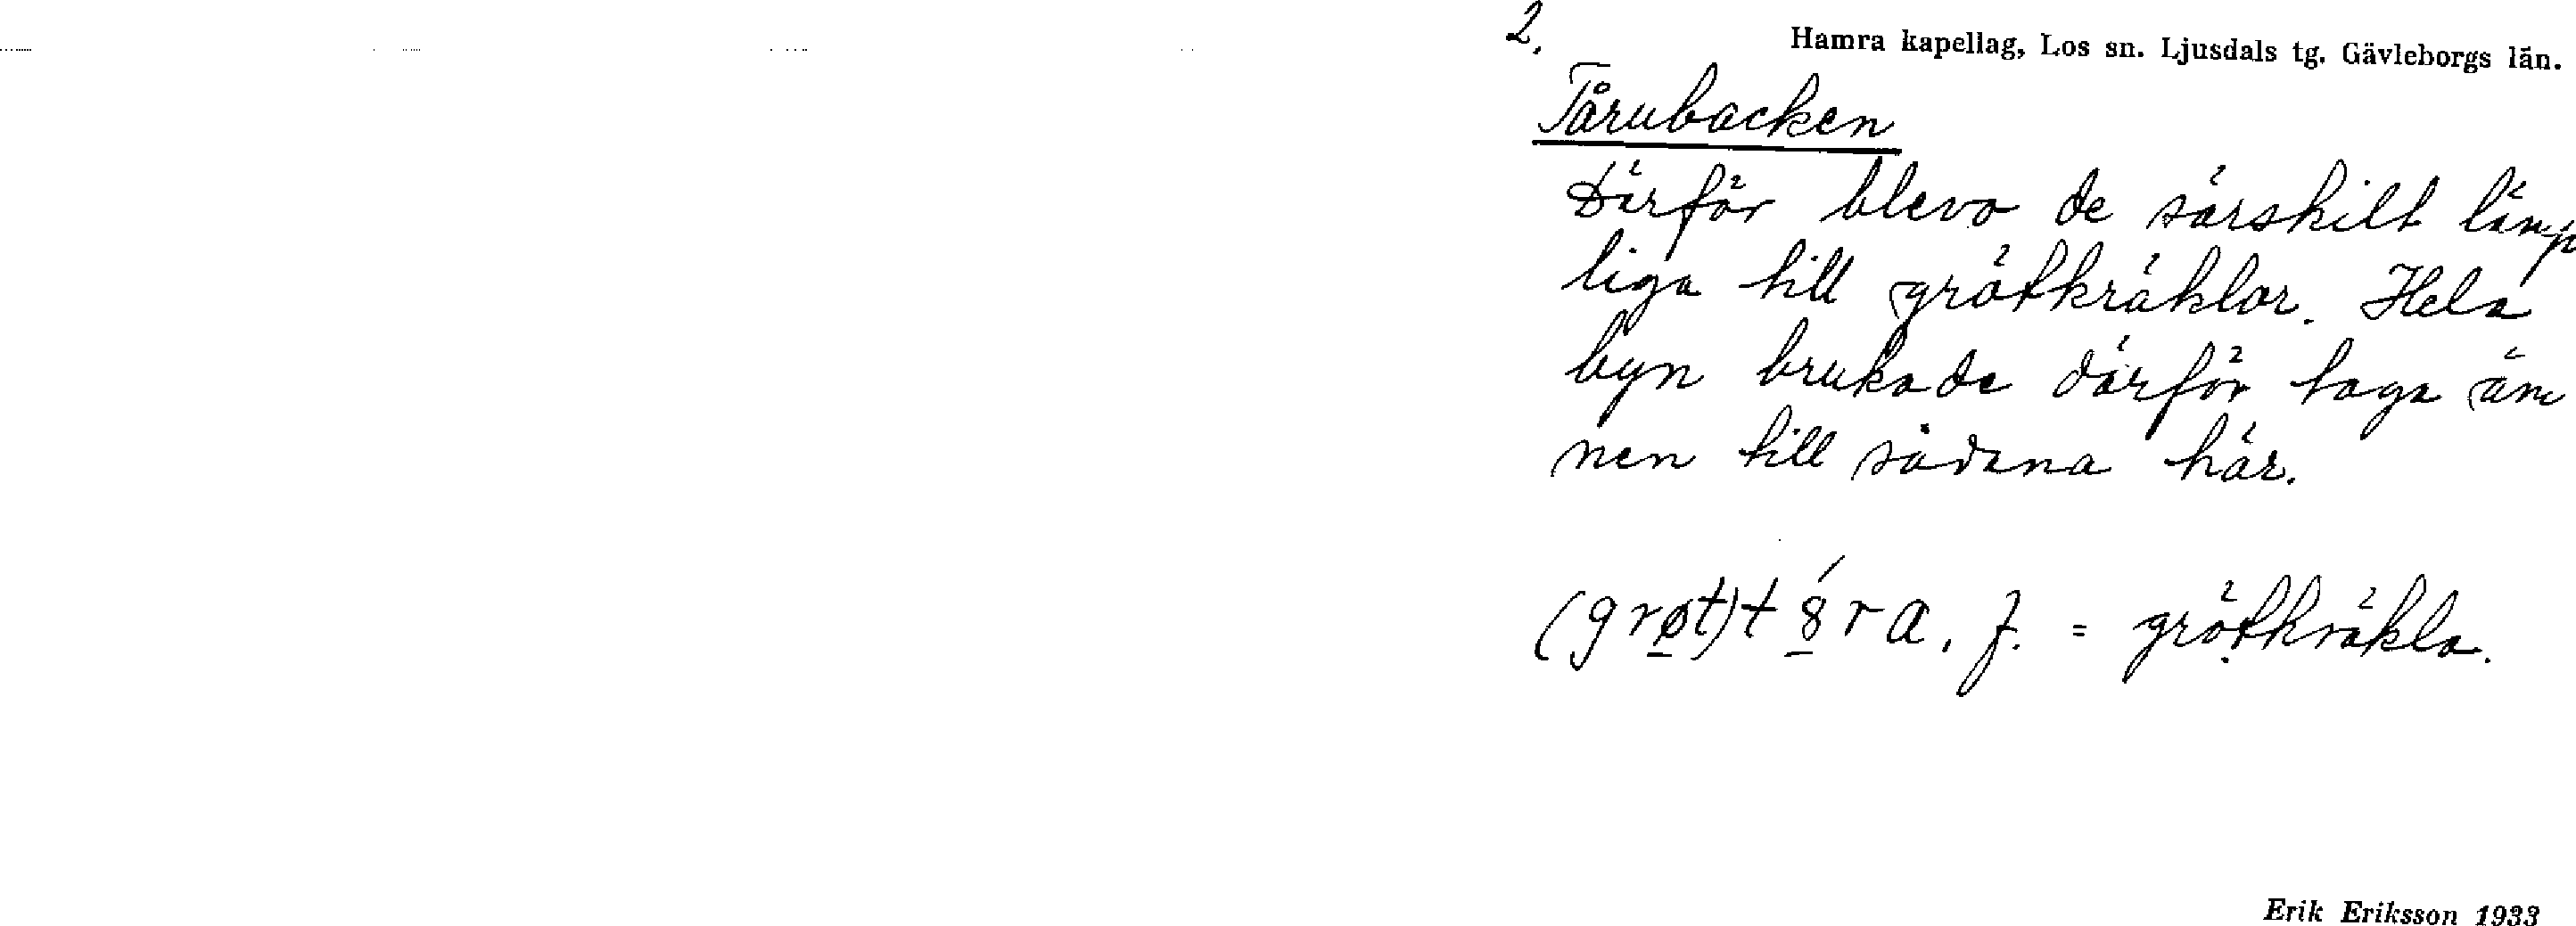 2.
Hamra kapellag, Los sn. Ljusdals tg. Gävleborgs län.
Tårubacken
Därför blevo de särskilt lämp
liga till grötkräklor. Hela
byn brukade därför taga äm
nen till sådana här.
(grøt)t8́ra, f. = grötkräkla.
Erik Eriksson 1933